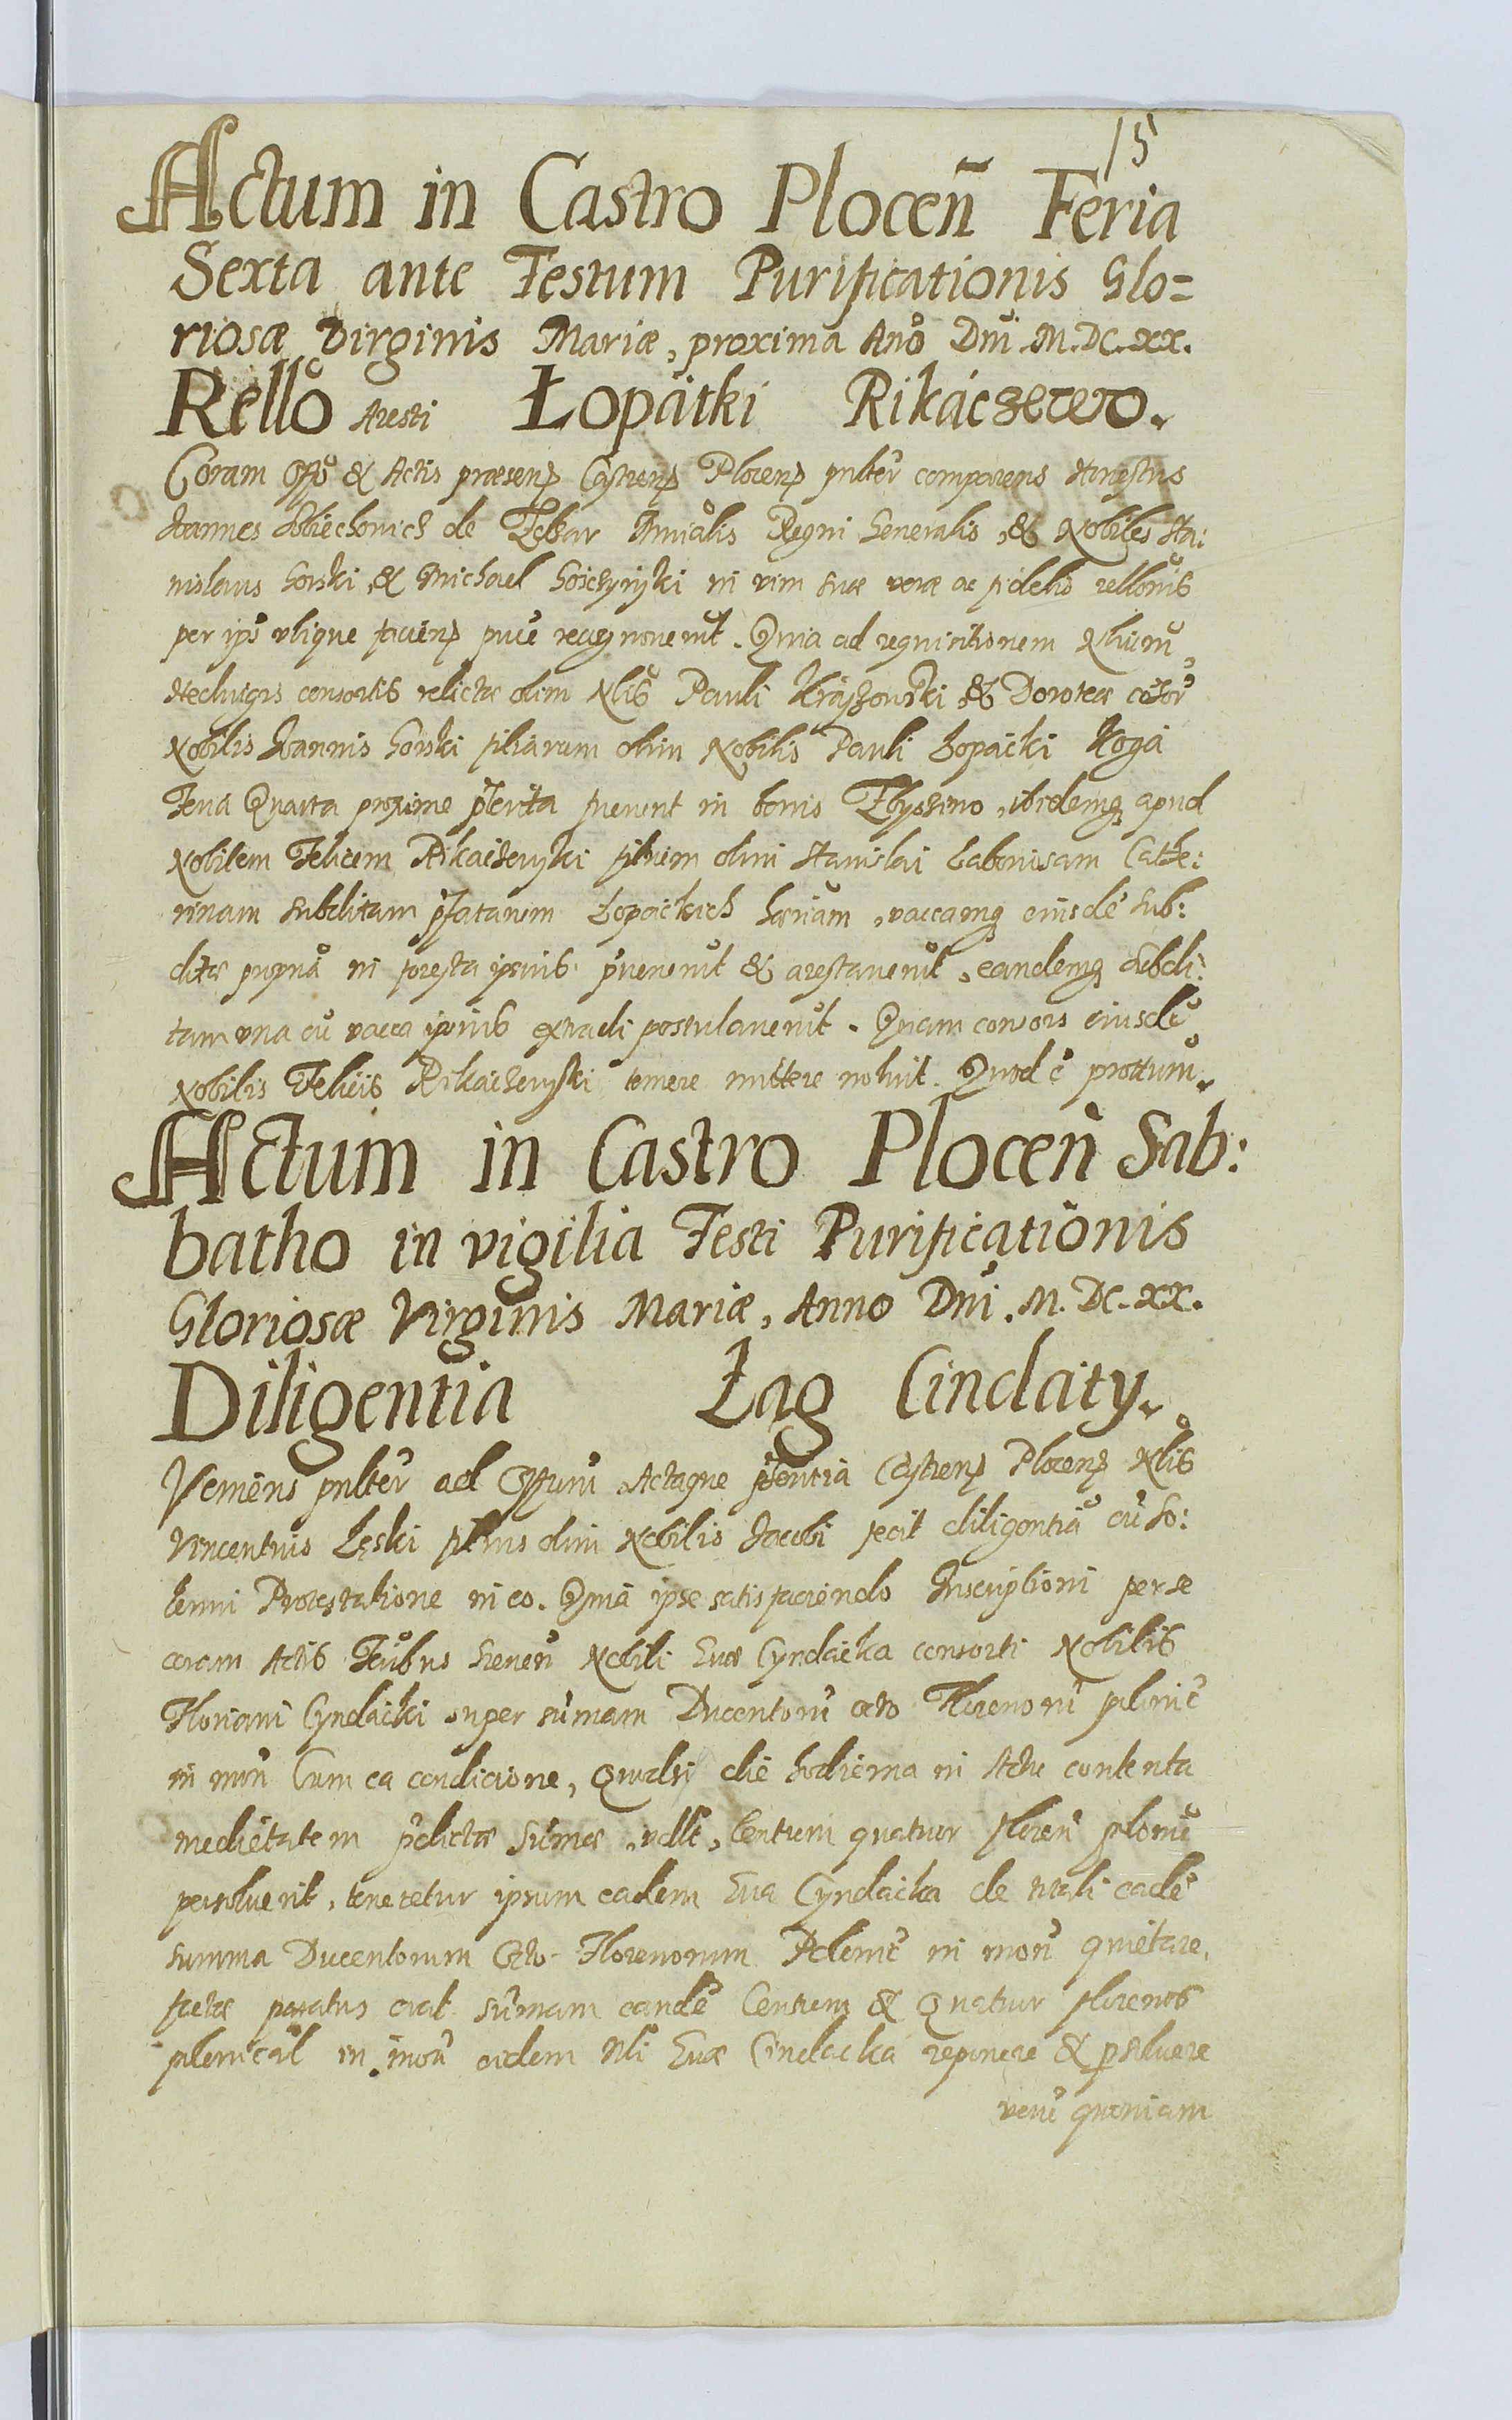 15
Actum in Castro Plocen̄ Feria
Sexta ante Festum Purificationis Glo=
riosæ Virginis Mariæ, proxima Año Dñi M.DC.XX.
Relló Aresti Łopátki Rikáczewo.
Coram Offo & Actis præsenp Castrenp Plocenp pnltẽr comparens Honestus
Joannes de Inrialis Regni Generalis, & Nobiles Sta:
nislaus Gorski & Michael in vim suæ veræ ac fidelis rellonis
per ipó vtique facienp recognoverut. Quia ad requisitionem
Hedvigis consortis relictæ olim Nlis Pauli & Doroteæ
Nobilis Joannis Gorski filiarum olim Nobilis Pauli Łopacki
Feria Quarta proxime pterita fuerunt in bonis ibidemq apud
Nobilem Felicem Rikaczewski filium olim Stanislai Laboriosam Cathe:
rinam Subditam pfatarum Łopackich vaccamq eiusdẽ Sub:
ditæ in foresta ipsius & arestauerut, eandemq Subdi:
tam vna cũ vacca ipsius extradi postulauerut. Quam consors eiusdẽ
Nobilis Felicis Rikaczewski temere mittere noluit. Quod ẽ prottum.
Actum in Castro Plocen̄ Sab:
batho in vigilia Festi Purificationis
Gloriosæ Virginis Mariæ, Anno Dñi. M. DC. XX.
Diligentia Łag Cindaity.
Veniens pnltẽr ad Offium Actaque pñtia Castrenp Plocenp Nlis
Vincentius Łęski filius olim Nobilis Jacobi fecit diligentiã cũ So:
lenni Protestatione in eo. Quia ipse satisfaciendo Inscriptioni per se
coram Actis Nobili Euæ Cyndacka consorti Nobilis
Floriani Cyndacki super sũmam Ducentorũ octo Florenorũ polonic̃
in mon̄ Cum ea condicione, Quod si die hodierna in Actu contenta
medietatem pdictæ Sũmæ, vdlt, Centum quatuor floren̄
persoluerit, teneretur ipsum eadem Eua Cyndacka de tali eadẽ
summa Ducentorum Octo Florenorum Polonic̃ in mon̄ quietare,
paratus erat sũmam eandẽ Centum & Quatuor florenos
in mon̄ eidem Nli Euæ Cindacka reponere & psoluere
verũ quoniam